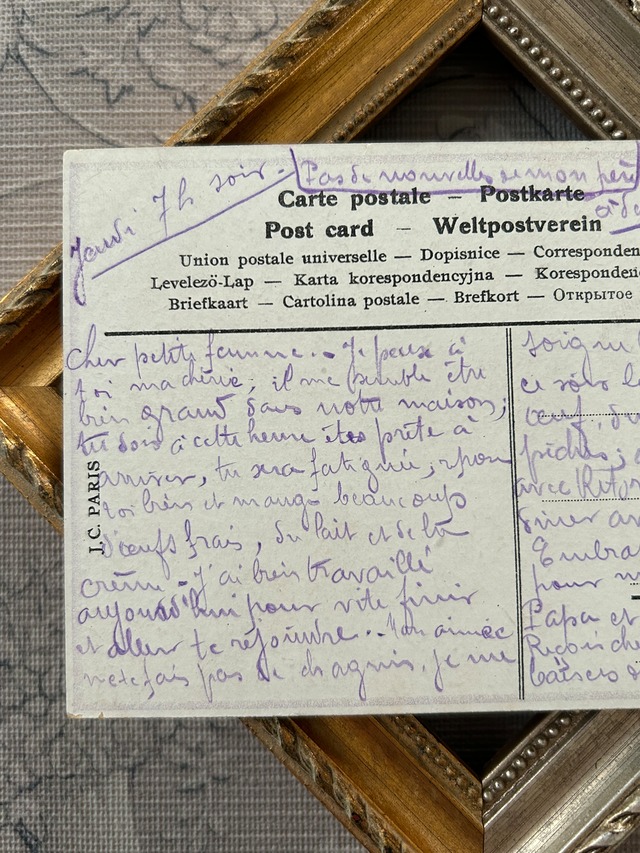 Jeudi 7h soir.
Pas de nouvelles de mon père
Carte postale – Postkarte
Post card – Weltpostverein
Union postale universelle — Dopisnice — Corresponden
Levelezö-Lap — Karta korespondencyjna — Koresponden
Briefkaart — Cartolina postale — Brefkort — Открытое
J.C. PARIS
cher petite femme. - Je pense à
toi ma chérie; il me semble être
bien grand dans notre maison;
tu dois à cette heure être prête à
arriver, tu sera fatiguée; repose
toi bien et mange beaucoup
d'œufs frais, du lait et de la
crème - J'ai bien travaillé
aujourd'hui pour vite finir
et aller te rejoindre.. Mon aimée
ne te fais pas de chagrin, je me
soigne
ce soir
œuf, d
pêches;
avec
diner av
Embra
pour m
Papa et
Reçois che
baisers d